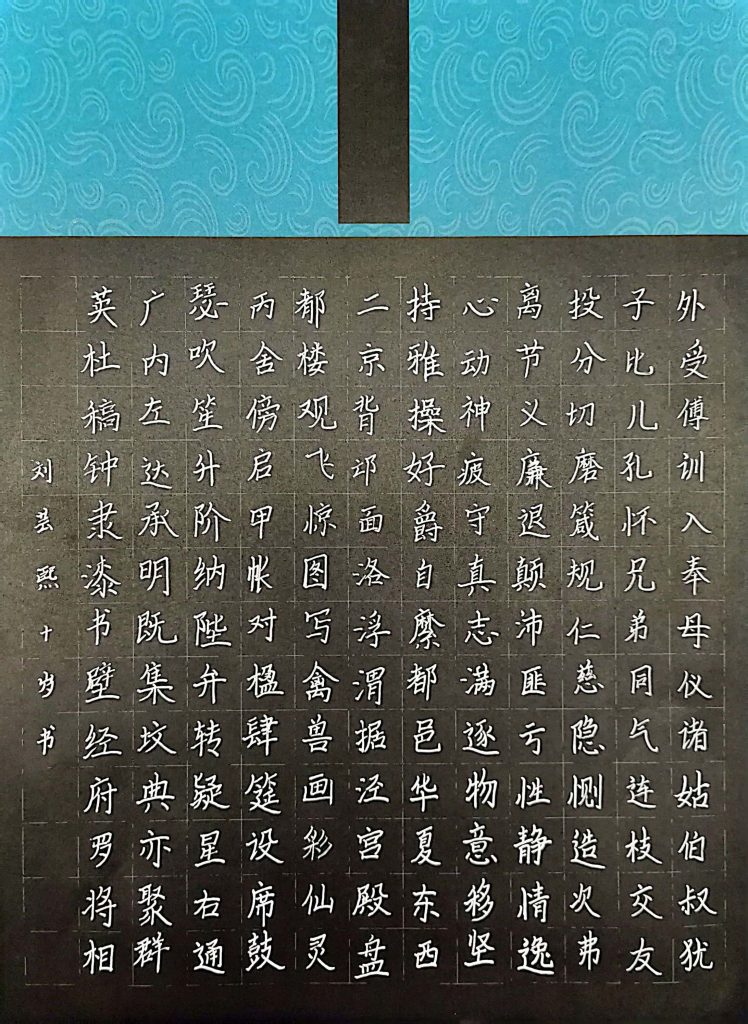 外受傅训入奉母仪诸姑伯叔犹
子比儿孔怀兄弟同气连枝交友
投分切磨箴规仁慈隐恻造次弗
离节义廉退颠沛匪亏性静情逸
心动神疲守真志满逐物意移坚
持雅操好爵自縻都邑华夏东西
二京背邙面洛浮渭据泾宫殿盘
都楼观飞惊图写禽兽画彩仙灵
丙舍傍启甲帐对楹肆筵设席鼓
瑟吹笙升阶纳陛弁转疑星右通
广内左达承明既集坟典亦聚群
英杜稿钟隶漆书壁经府罗将相
刘芸熙十岁书